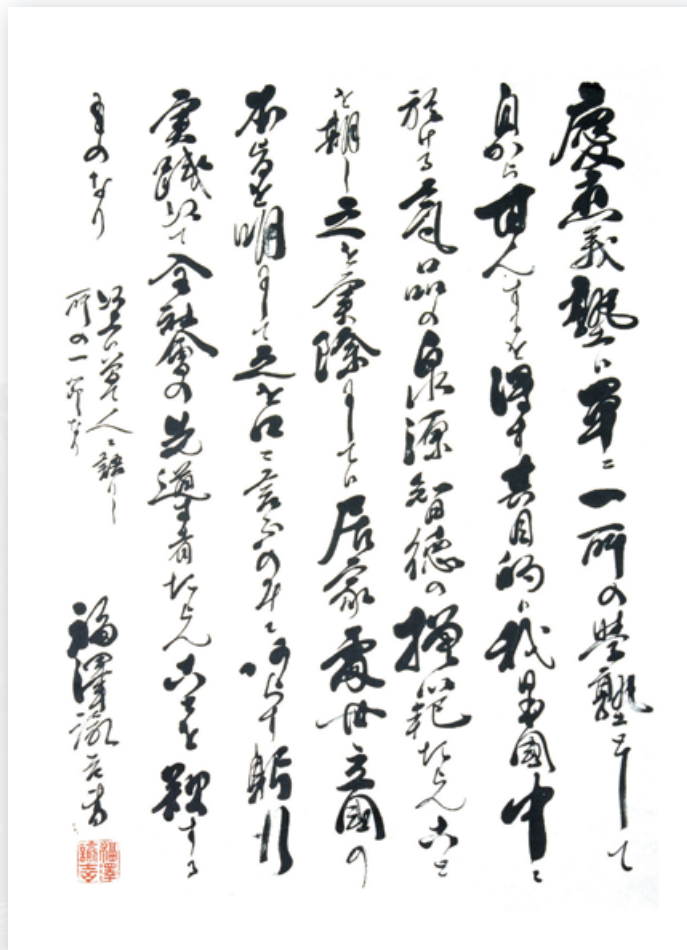 慶應義塾は單に一所の學塾として
自から甘んずるを得ず其目的は我日本國中に
於ける氣品の泉源智徳の模範たらんこと
を期し之を實際にしては居家處世立國の
本旨を明にして之を口に言ふのみに非ず躬行
実践以て全社會の先導者たらんことを期する
ものなり
以上は曽て人に語りし
所の一節なり
福澤諭吉書
福澤
諭吉